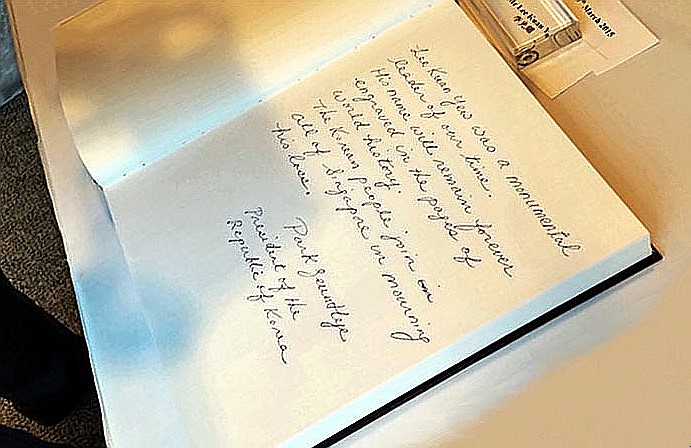 Lee Kuan Yew was a monumental
leader of our time.
His name will remain forever
engraved in the pages of
world history.
The Korean people join in
all of Singapore in mourning
his loss.
Park Geunhye
President of the
Republic of Korea
Mr Lee Kuan
March 2015